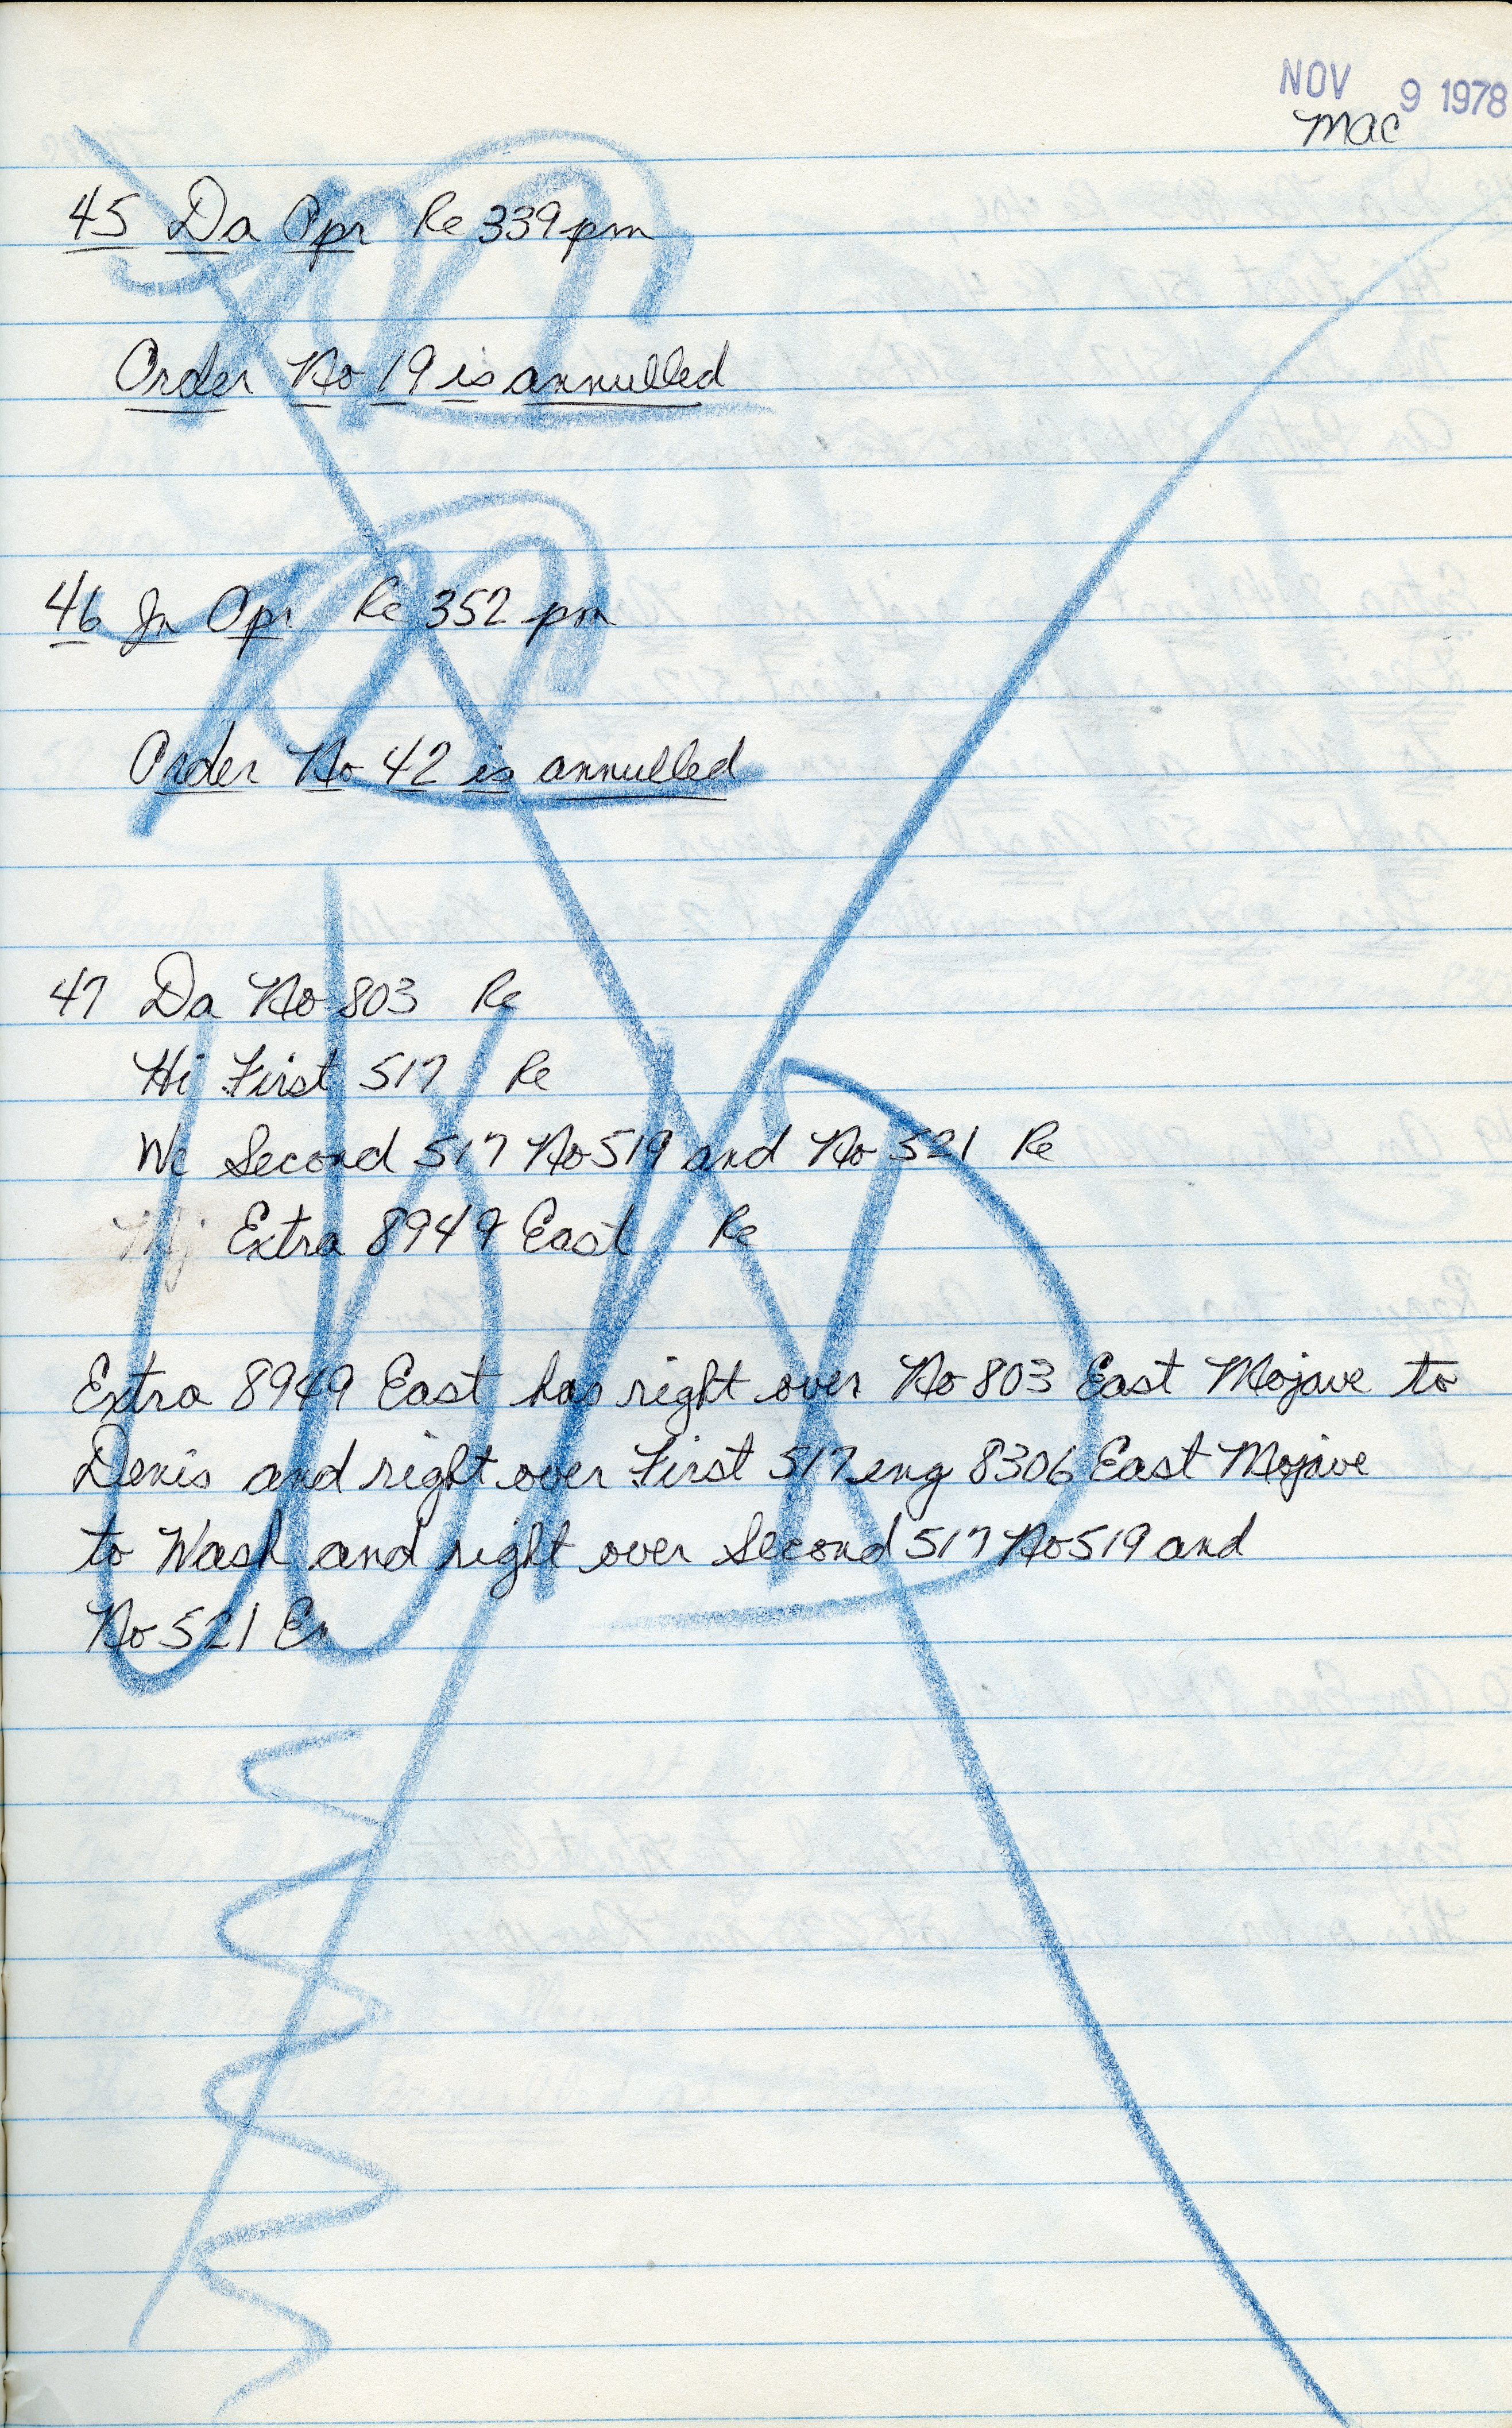 NOV 9 1978
mac
45 Da Opr Re 339 pm
Order No 19 is annulled
46 Jn Opr Re 352 pm
Order No 42 is annulled
47 Da No 803 Re
Hi First 517 Re
Wc Second 517 No 519 and No 521 Re
Mj Extra 8949 East Re
Extra 8949 East has right over No 803 East Mojave to
Denis and right over First 517 eng 8306 East Mojave
to Wash and right over Second 517 No 519 and
No 521 Ea